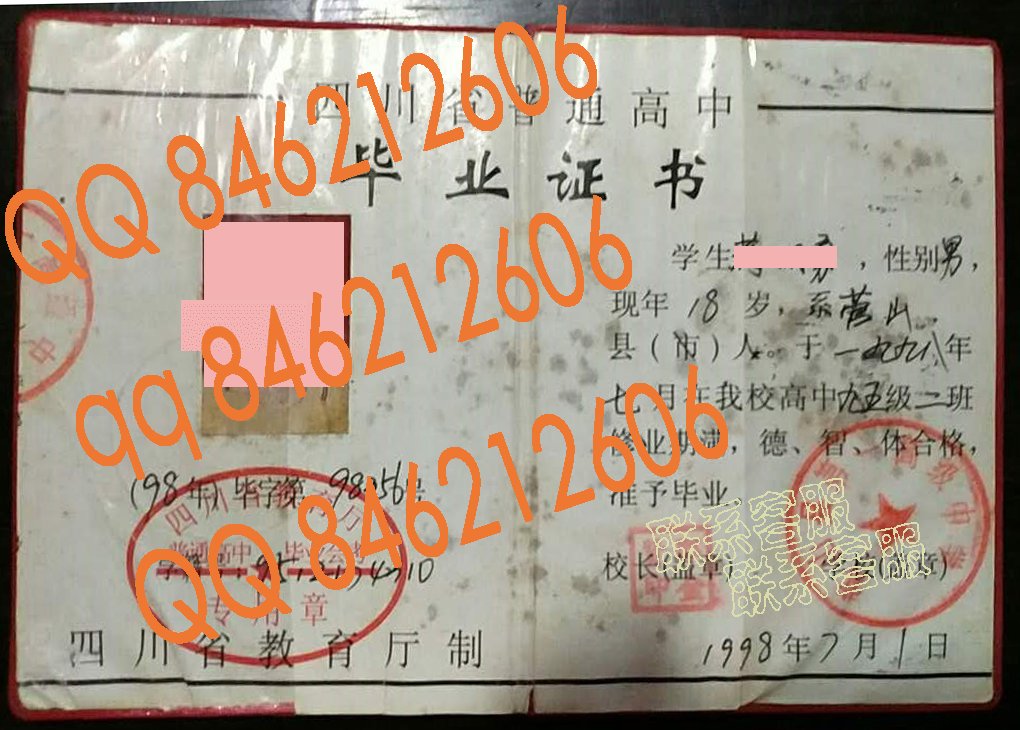 四川省普通高中
毕业证书
QQ 846212606
学生
，性别男，
现年18岁，系营山
县（市）人。于一九九八年
七月在我校高中九五级二班
修业期满，德、智、体合格，
准予毕业。
qq 846212606
（98年）毕字第
号
四川省教育厅
普通高中毕业证书
专用章
QQ 846212606
校长(盖章)
学校(盖章)
联系客服
联系客服
高级中学
四川省教育厅制
1998年7月1日